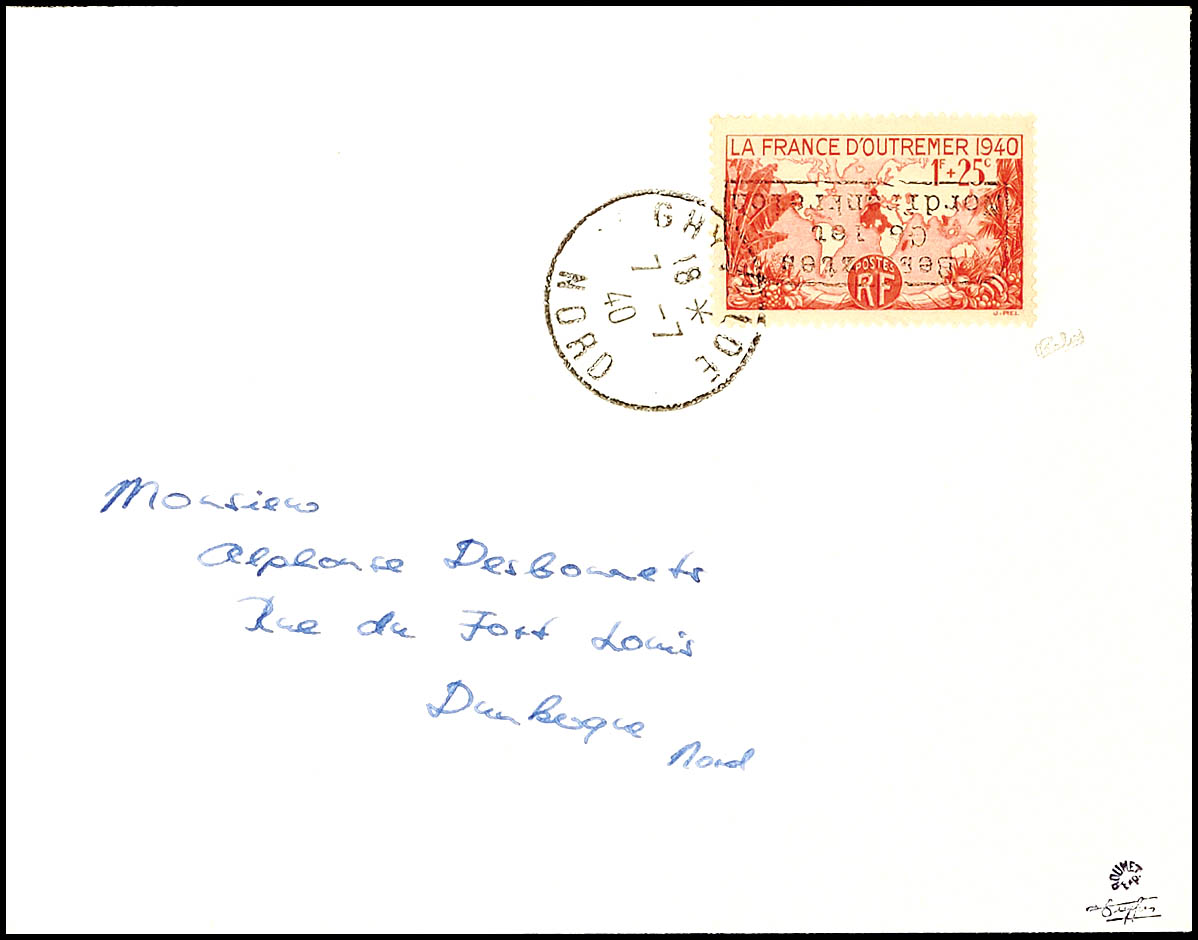 LA FRANCE D'OUTREMER 1940
1F + 25c
Besetztes
Gebiet
Nordfrankreich
POSTES
RF
J.PIEL
GHYVELDE
18 *
7 -7
40
NORD
Monsieur
Alphonse Desbonnets
Rue du Fort Louis
Dunkerque
Nord
ROUMET
EXP.